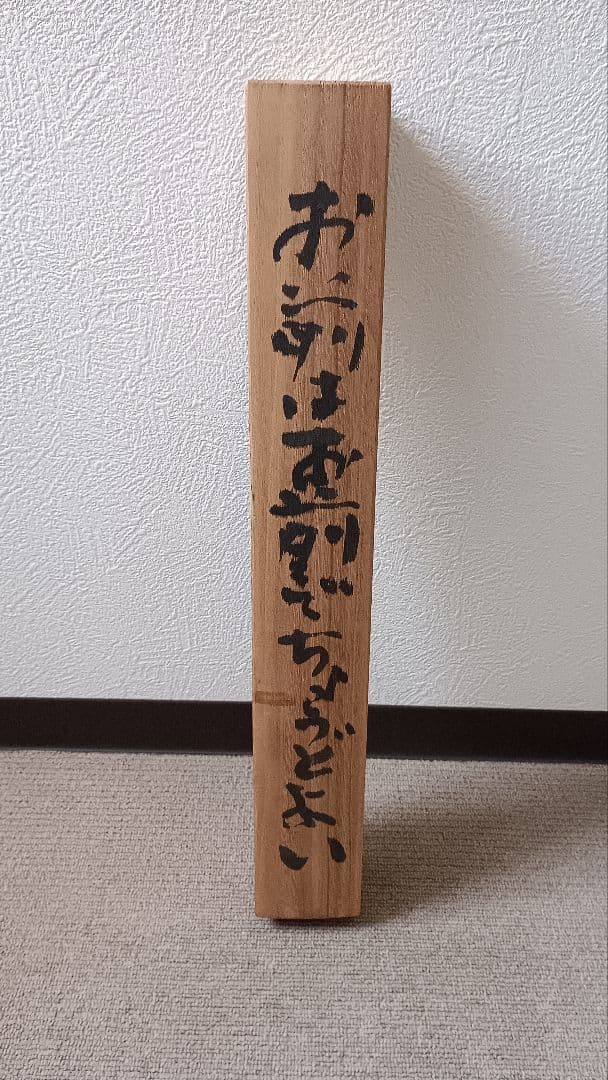 お前はお前でちょうどよい